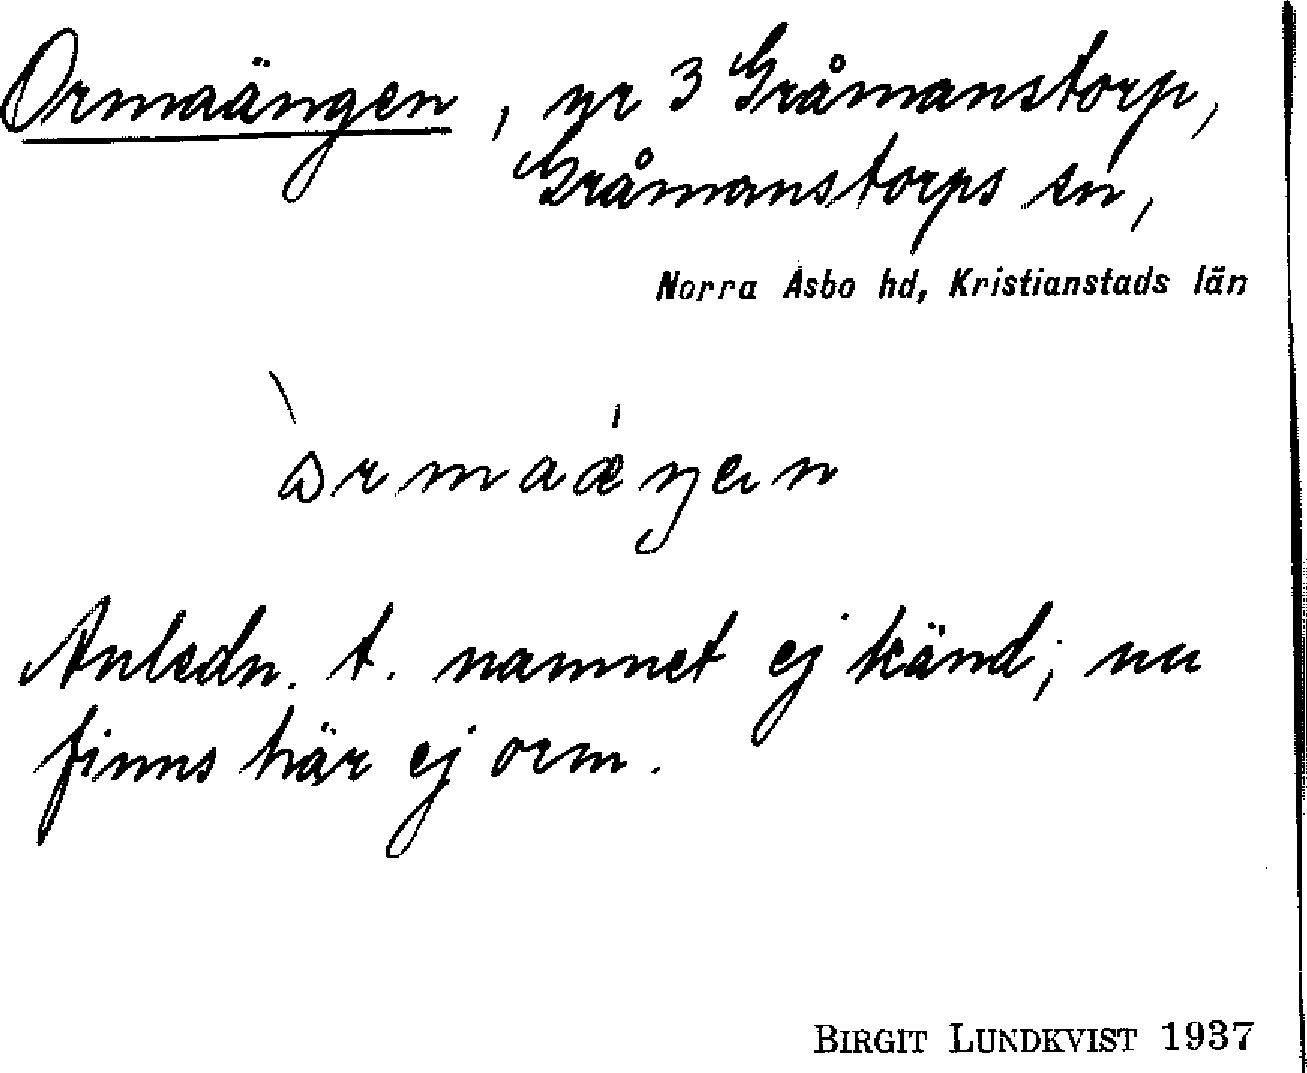 Ormaängen, nr 3 Gråmanstorp,
Gråmanstorps sn,
Norra Åsbo hd, Kristianstads län
Anledn. t. namnet ej känd; nu
finns här ej orm.
BIRGIT LUNDKVIST 1937